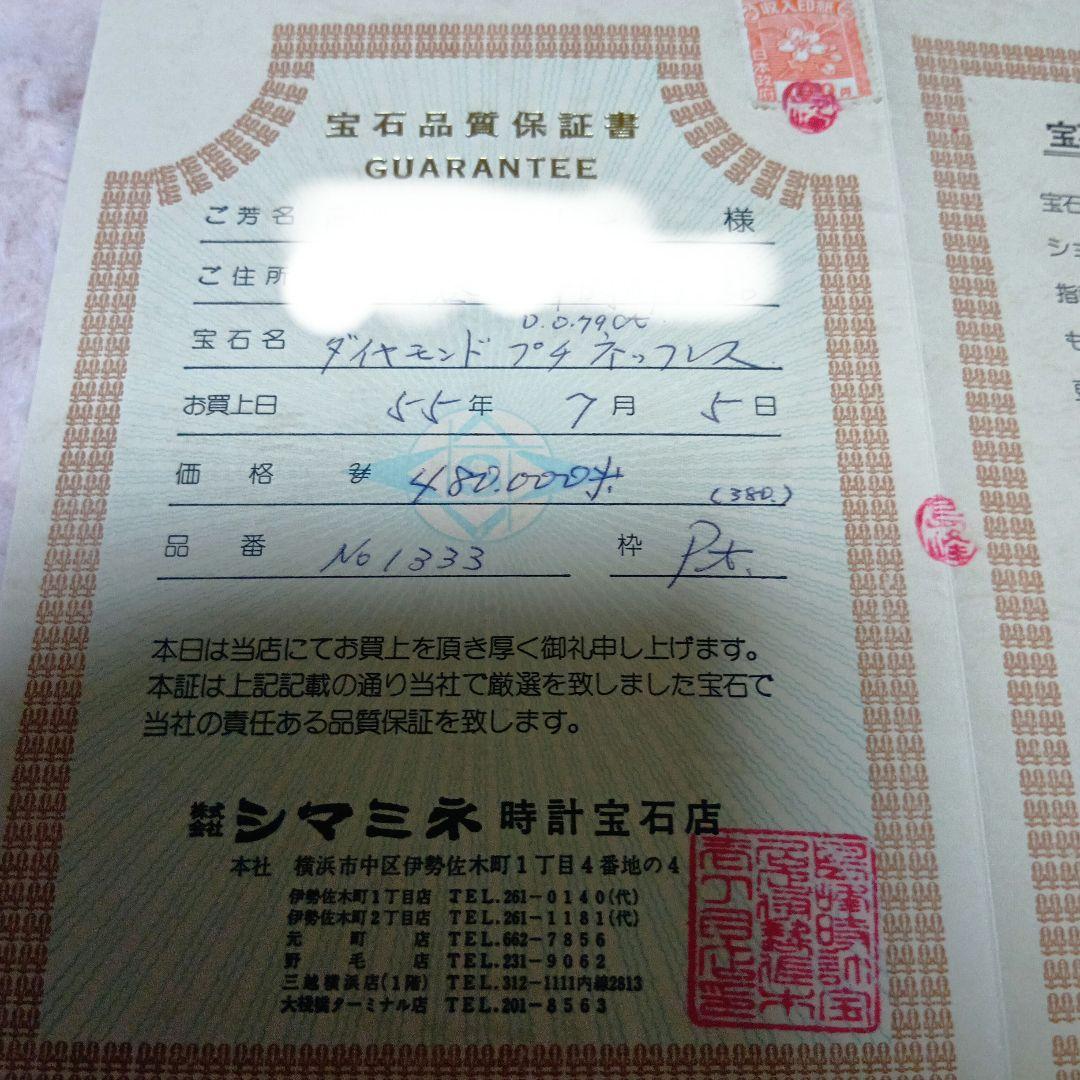 収入印紙
日本政府
宝石品質保証書
GUARANTEE
ご芳名 様
ご住所
D.0.79ct.
宝石名 ダイヤモンド プチネックレス
お買上日 55年 7月 5日
価格 ¥ 480.000 (380.)
品番 No 1333 枠 Pt.
本日は当店にてお買上を頂き厚く御礼申し上げます。
本証は上記記載の通り当社で厳選を致しました宝石で
当社の責任ある品質保証を致します。
株式会社 シマミネ 時計宝石店
本社 横浜市中区伊勢佐木町1丁目4番地の4
伊勢佐木町1丁目店 TEL.261-0140(代)
伊勢佐木町2丁目店 TEL.261-1181(代)
元町店 TEL.662-7856
野毛店 TEL.231-9062
三越横浜店(1階) TEL.312-1111内線2813
大桟橋ターミナル店 TEL.201-8563
宝
宝石
ショ
指
も